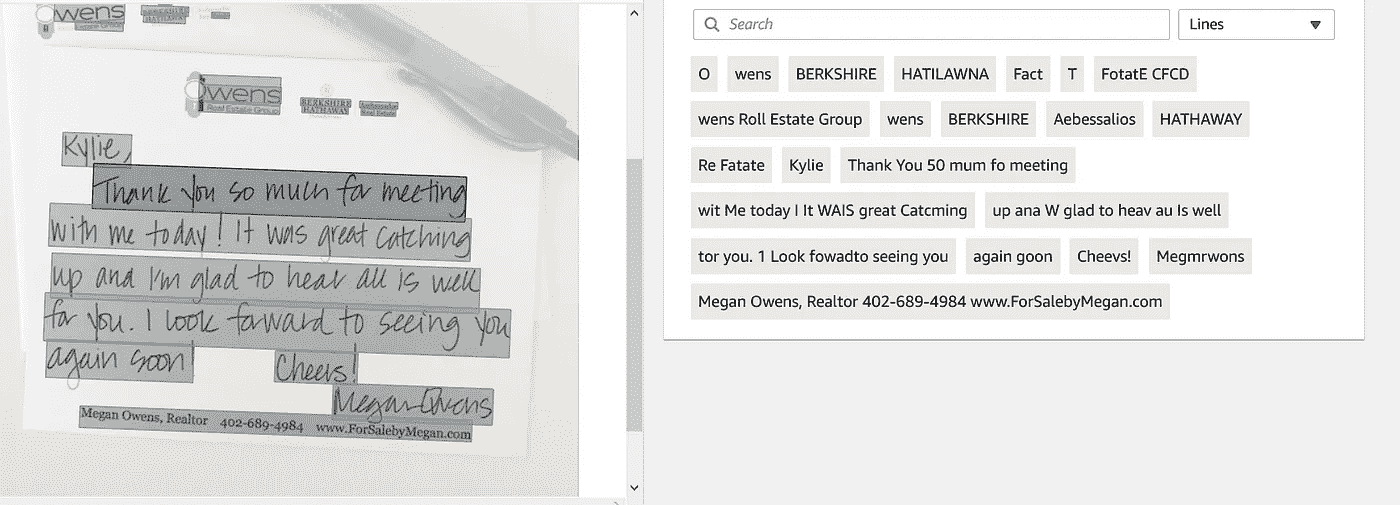 Owens
Real Estate Group
BERKSHIRE
HATHAWAY
Owens
Real Estate Group
BERKSHIRE
HATHAWAY
Ambassador
Real Estate
Kylie,
Thank you so much for meeting
with me today! It was great catching
up and I'm glad to hear all is well
for you. I look forward to seeing you
again soon!
Cheers!
Megan Owens
Megan Owens, Realtor 402-689-4984 www.ForSalebyMegan.com
Search
Lines
O wens BERKSHIRE HATILAWNA Fact T FotatE CFCD
wens Roll Estate Group wens BERKSHIRE Aebessalios HATHAWAY
Re Fatate Kylie Thank You 50 mum fo meeting
wit Me today I It WAIS great Catcming up ana W glad to heav au Is well
tor you. 1 Look fowadto seeing you again goon Cheevs! Megmrwons
Megan Owens, Realtor 402-689-4984 www.ForSalebyMegan.com